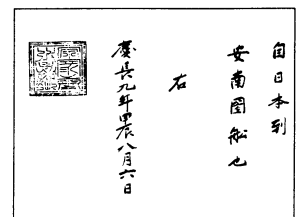 自日本到
安南國舩也
右
慶長九年甲辰八月六日